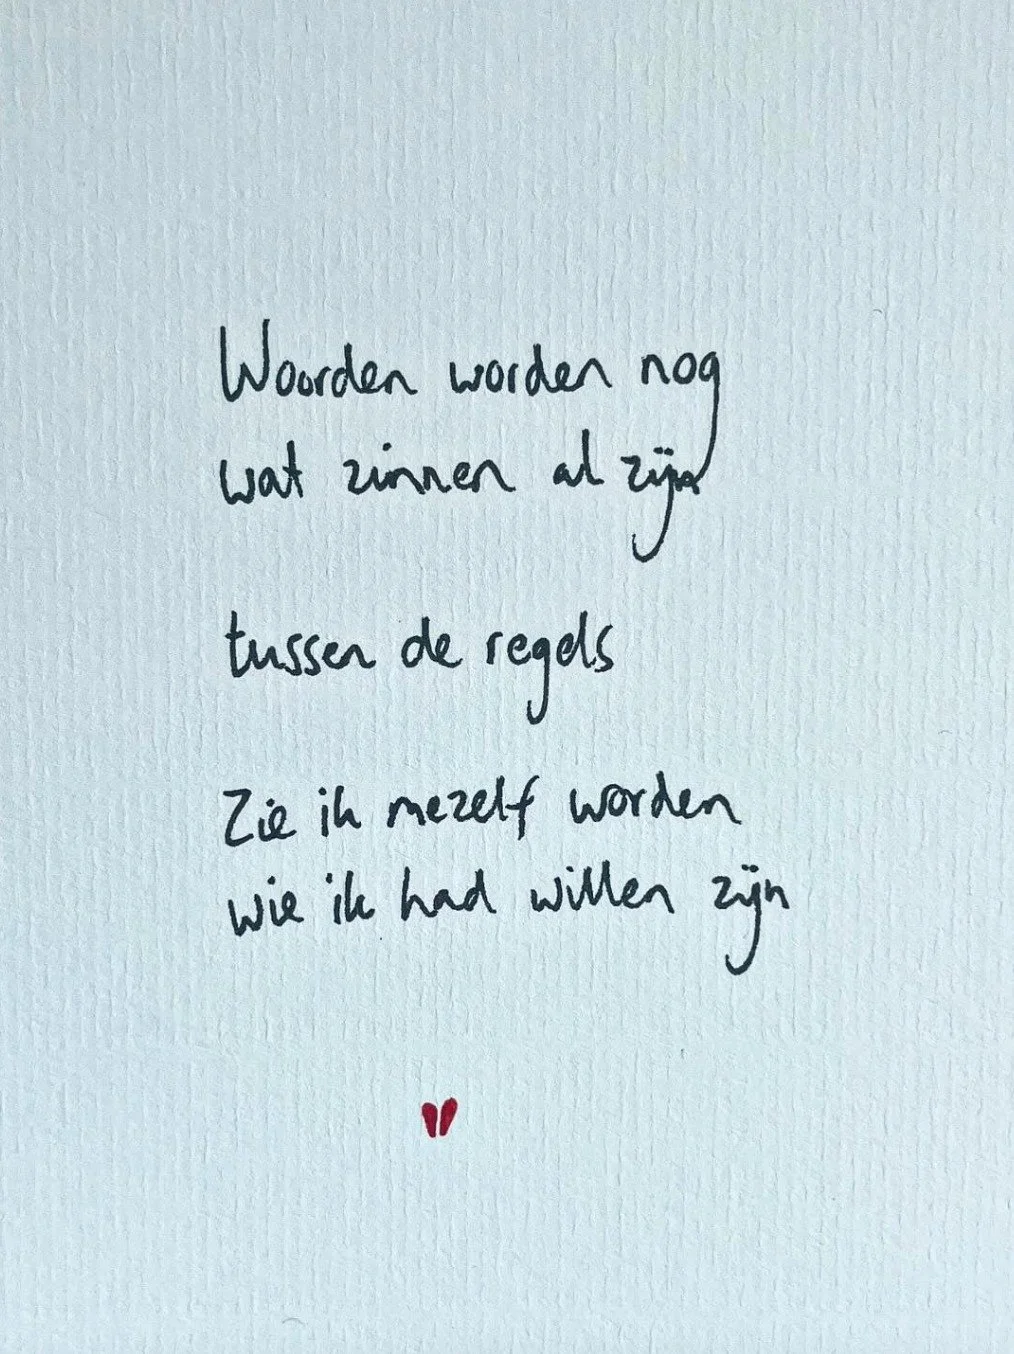 Woorden worden nog
wat zinnen al zijn
tussen de regels
Zie ik mezelf worden
wie ik had willen zijn